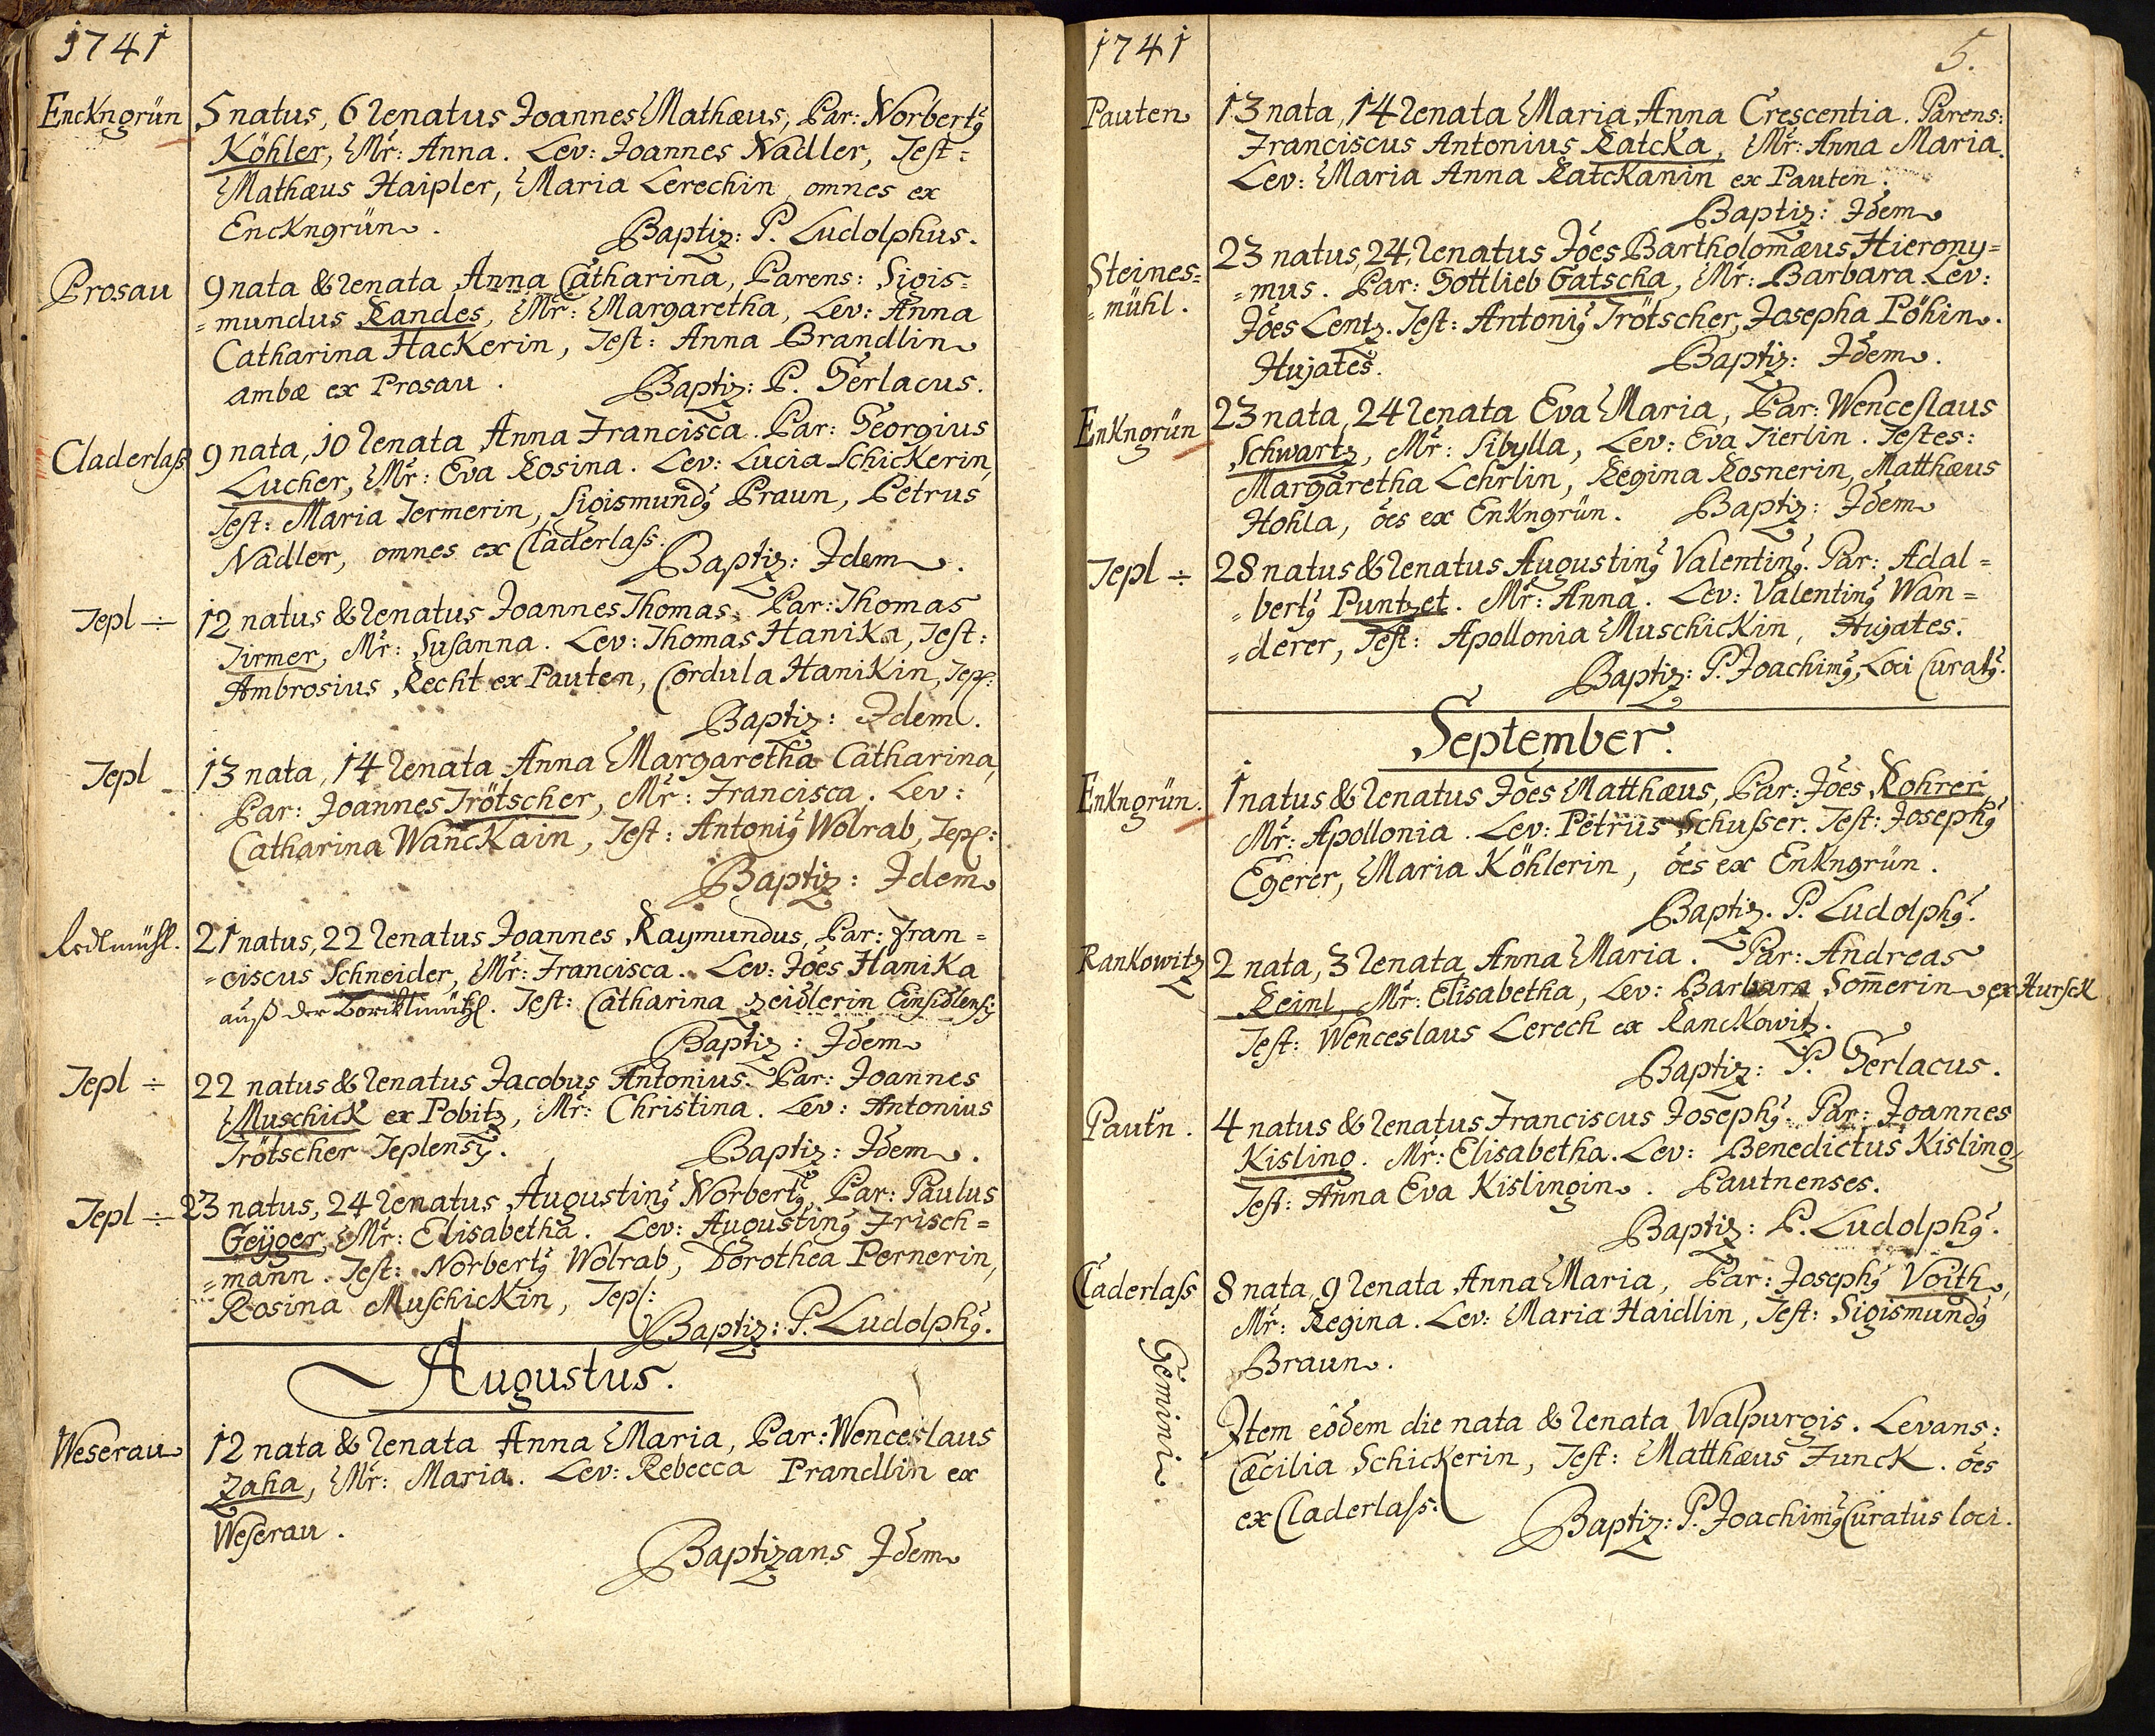 1741
Enckngrün
5 natus, 6 renatus Joannes Mathæus, Par: Norbertꝰ
Köhler, Mr: Anna. Lev: Joannes Nadler, Test:
Mathæus Haipler, Maria Lerechin, omnes ex
Enckngrün.
Baptiz: P. Ludolphus.
Prosau
9 nata & renata Anna Catharina, Parens: Sigis=
=mundus Randes, Mr: Margaretha, Lev: Anna
Catharina Hackerin, Test: Anna Brandlin
ambæ ex Prosau.
Baptiz: P. Gerlacus.
Claderlaß
9 nata, 10 renata Anna Francisca. Par: Georgius
Lucher, Mr: Eva Rosina. Lev: Lucia Schickerin,
Test: Maria Termerin, Sigismundꝰ Praun, Petrus
Nadler, omnes ex Claderlass.
Baptiz: Idem.
Tepl ÷
12 natus & renatus Joannes Thomas. Par: Thomas
Tirmer, Mr: Susanna. Lev: Thomas Hanika, Test:
Ambrosius Recht ex Pauten, Cordula Hanikin, Tepl:
Baptiz: Idem.
Tepl
13 nata, 14 renata Anna Margaretha Catharina,
Par: Joannes Trötscher, Mr: Francisca. Lev:
Catharina Wanckain, Test: Antoniꝰ Wolrab, Tepl:
Baptiz: Idem
Redlmühl.
21 natus, 22 renatus Joannes Raymundus, Par: Fran=
=ciscus Schneider, Mr: Francisca. Lev: Jões Hanika
auß der Test: Catharina Zeidlerin Einsidlensꝭ
Baptiz: Idem
Tepl ÷
22 natus & renatus Jacobus Antonius. Par: Joannes
Muschick ex Pobitz, Mr: Christina. Lev: Antonius
Trötscher Teplensꝭ.
Baptiz: Idem.
Tepl ÷
23 natus, 24 renatus Augustinꝰ Norbertꝰ, Par: Paulus
Geÿger, Mr: Elisabetha. Lev: Augustinꝰ Frisch=
=mann. Test: Norbertꝰ Wolrab, Dorothea Pernerin,
Rosina Muschickin, Tepl:
Baptiz: P. Ludolphꝰ.
Augustus.
Weserau
12 nata & renata Anna Maria, Par: Wenceslaus
Zaha, Mr: Maria. Lev: Rebecca Prandlin ex
Weserau.
Baptizans Idem
1741
5.
Pauten
13 nata, 14 renata Maria Anna Crescentia. Parens:
Franciscus Antonius Ratcka, Mr: Anna Maria.
Lev: Maria Anna Ratckanin ex Pauten.
Baptiz: Idem
Steines=
=mühl.
23 natus, 24 renatus Jões Bartholomæus Hierony=
=mus. Par: Gottlieb Gatscha, Mr: Barbara. Lev:
Jões Lentz. Test: Antoniꝰ Trötscher, Josepha Pöhin.
Hujates.
Baptiz: Idem.
Enkngrün
23 nata, 24 renata Eva Maria, Par: Wenceslaus
Schwartz, Mr: Sibylla, Lev: Eva Tierlin. Testes:
Margaretha Lehrlin, Regina Rosnerin, Matthæus
Hohla, ões ex Enkngrün.
Baptiz: Idem
Tepl ÷
28 natus & renatus Augustinꝰ Valentinꝰ. Par: Adal=
=bertꝰ Puntzet. Mr: Anna. Lev: Valentinꝰ Wan=
=derer, Test: Apollonia Muschickin, Hujates.
Baptiz: P. Joachimꝰ, Loci Curatꝰ.
September.
Enkngrün.
1 natus & renatus Jões Matthæus, Par: Jões Rohrer,
Mr: Apollonia. Lev: Petrus Schusser. Test: Josephꝰ
Egerer, Maria Köhlerin, ões ex Enkngrün.
Baptiz. P. Ludolphꝰ.
Rankowitz
2 nata, 3 renata Anna Maria. Par: Andreas
Reiml, Mr: Elisabetha, Lev: Barbara Som̄erin ex Hurſck
Test: Wenceslaus Lerech ex Ranckowitz.
Baptiz: P. Gerlacus.
Pautn.
4 natus & renatus Franciscus Josephꝰ. Par: Joannes
Kisling. Mr: Elisabetha. Lev: Benedictus Kisling,
Test: Anna Eva Kislingin. Pautnenses.
Baptiz: P. Ludolphꝰ.
Claderlass
8 nata, 9 renata Anna Maria, Par: Josephꝰ Voith,
Mr: Regina. Lev: Maria Haidlin, Test: Sigismundꝰ
Braun.
Gemini
Item eôdem die nata & renata Walpurgis. Levans:
Cæcilia Schickerin, Test: Matthæus Funck. ões
ex Claderlass:
Baptiz: P. Joachimꝰ Curatus loci.